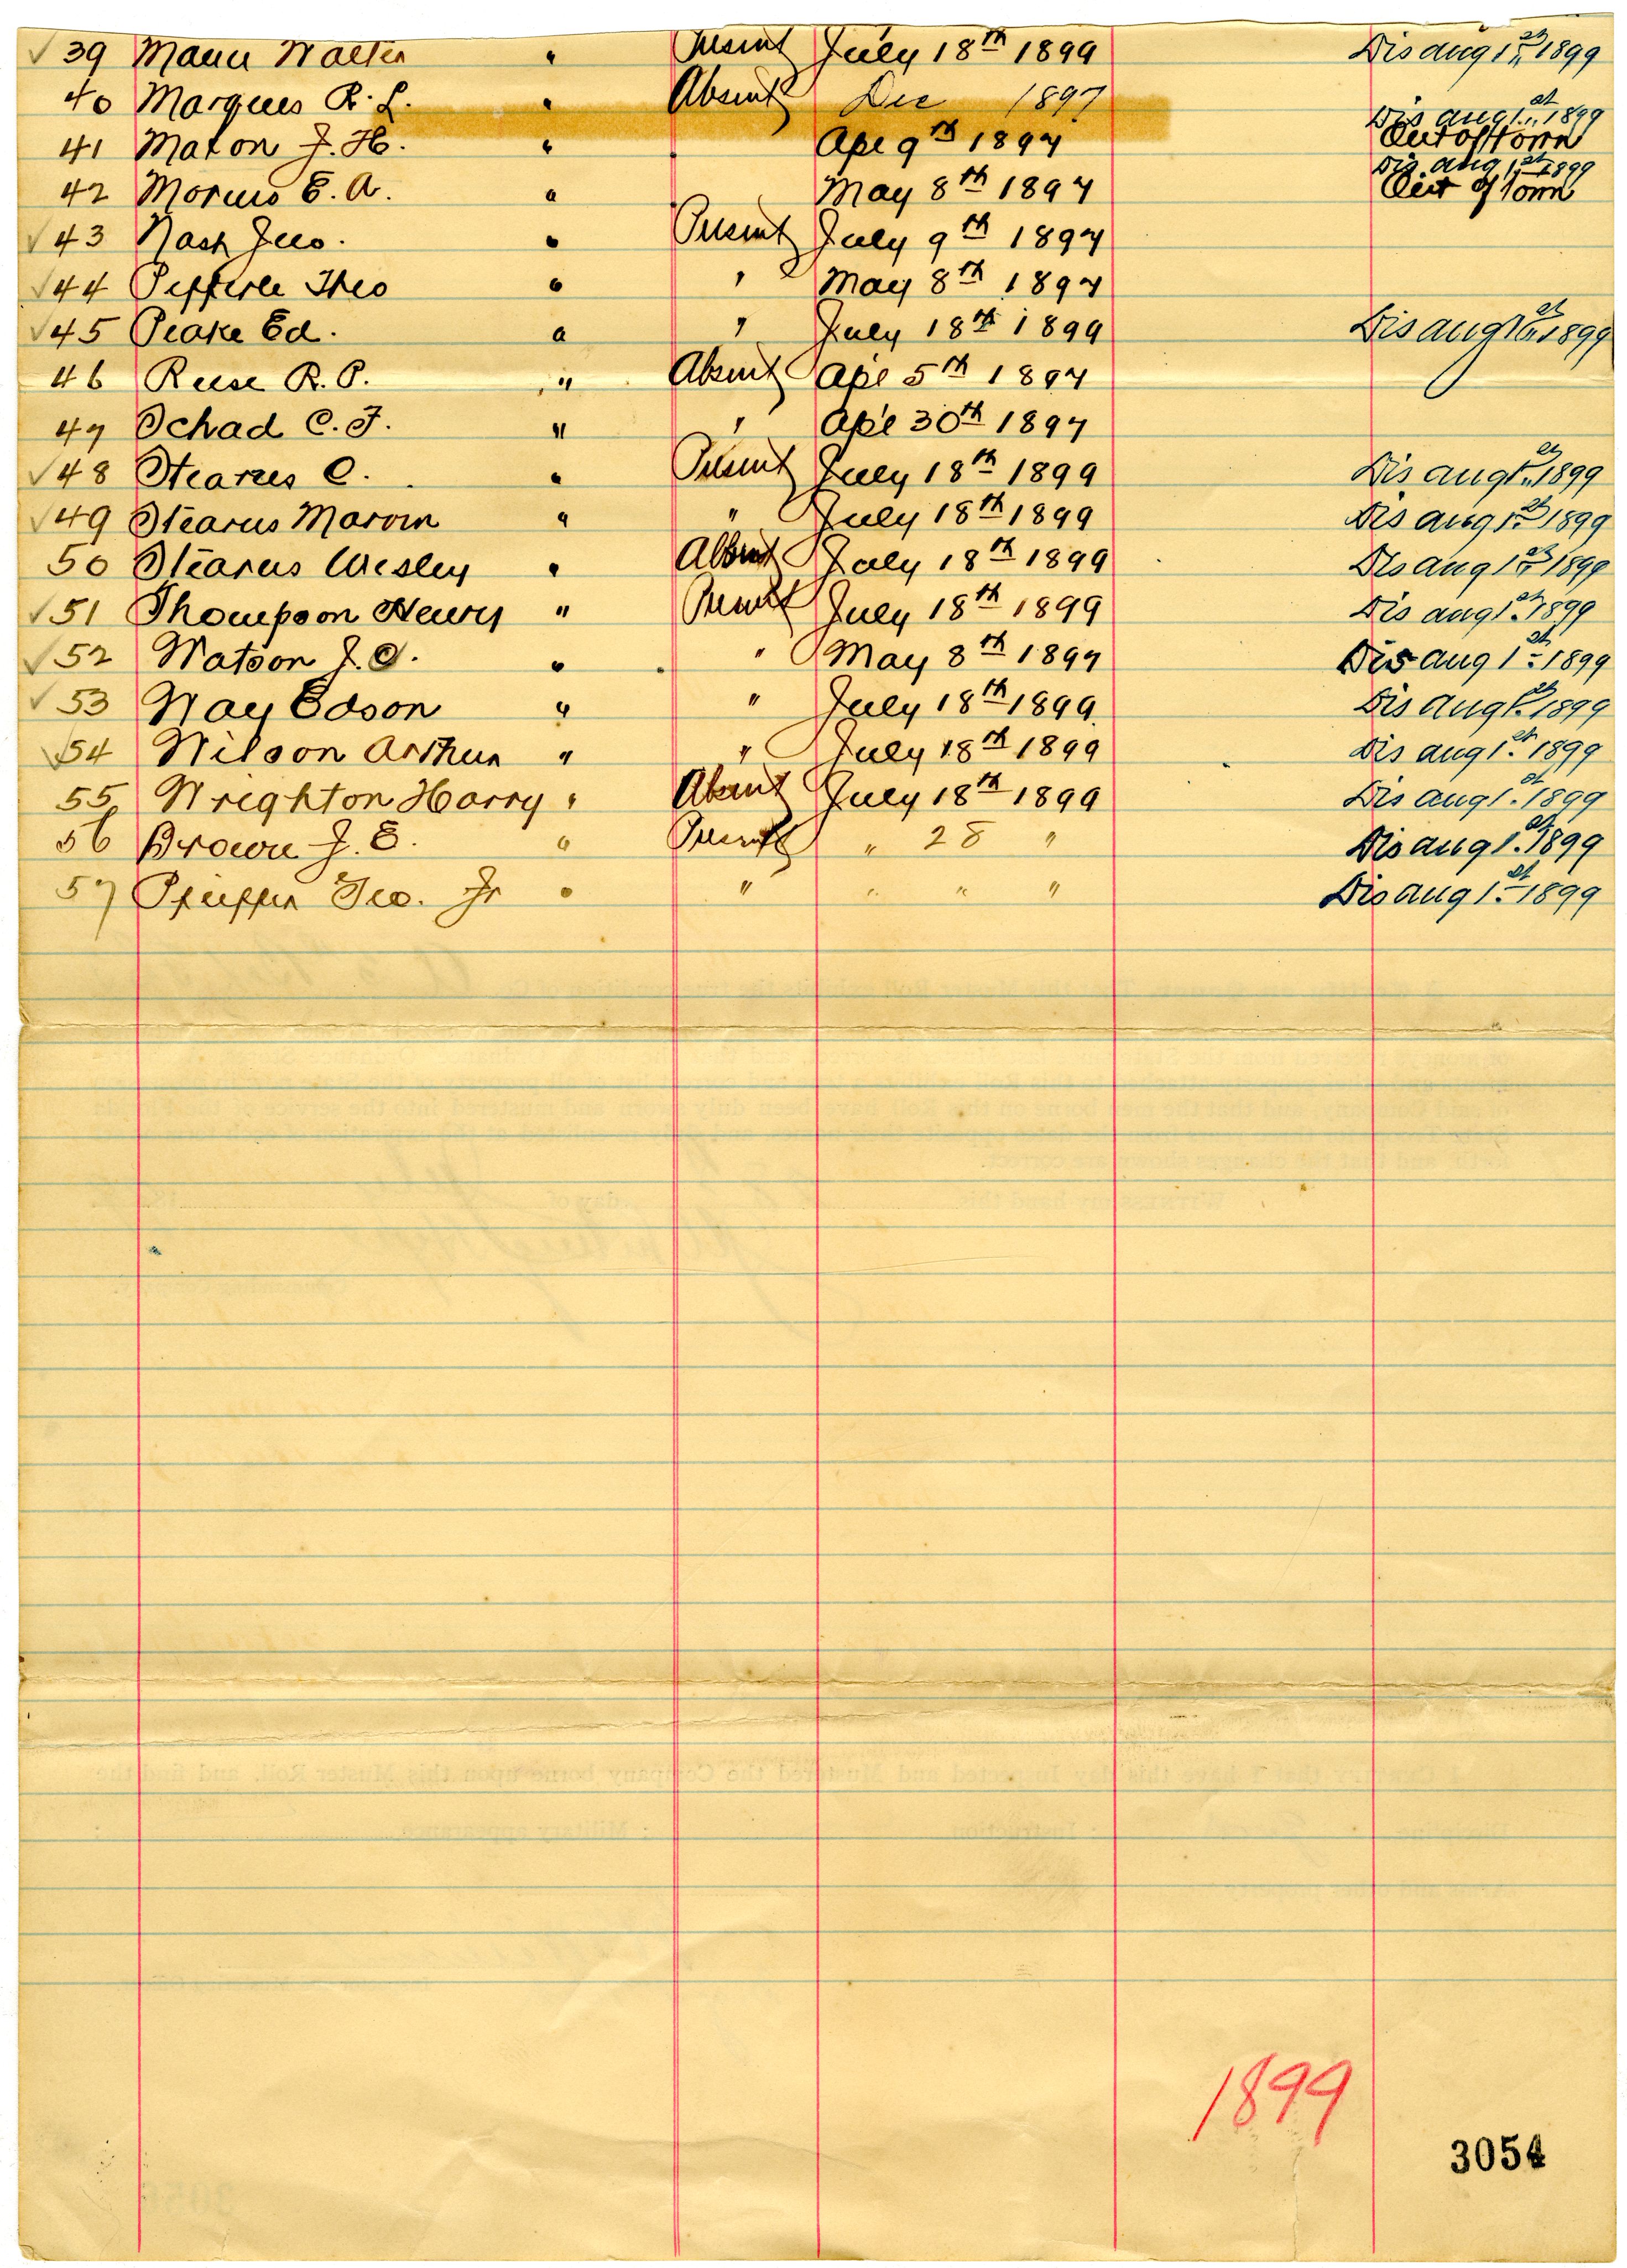 ✓ 39 Mann Walter " Present July 18th 1899 Dis aug 1st 1899
40 Marques R. L. " Absent Dec 1897 Dis aug 1st 1899
41 Maton J. H. " Ape 9th 1897 Out of town
Dis. aug 1st 1899
42 E. A. " May 8th 1897 Out of Town
✓ 43 Nash Jno. " Present July 9th 1897
✓ 44 Theo " " May 8th 1897
✓ 45 Peake Ed. " " July 18th 1899 Dis aug 1st 1899
46 Reese R. P. " Absent Apl 5th 1897
47 Schad C. F. " " Apl 30th 1897
✓ 48 Stearns C. " Present July 18th 1899 Dis aug 1st 1899
✓ 49 Stearns Marvin " " July 18th 1899 Dis aug 1st 1899
50 Stearns Wesley " Absent July 18th 1899 Dis aug 1st 1899
✓ 51 Thompson Henry " Present July 18th 1899 Dis aug 1st 1899
✓ 52 Watson J. O. " " May 8th 1897 Dis aug 1st 1899
✓ 53 Way Edson " " July 18th 1899 Dis aug 1st 1899
✓ 54 Wilson Arthur " " July 18th 1899 Dis aug 1st 1899
55 Wrighton Harry " Absent July 18th 1899 Dis aug 1st 1899
56 Brown J. E. " Present " 28 " Dis aug 1st 1899
57 Pfeiffer Geo. Jr " " " " " Dis aug 1st 1899
1899
3054